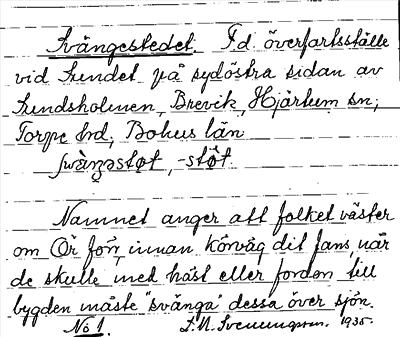 Svängestedet. F.d. överfartsställe
vid Sundet på sydöstra sidan av
Sundsholmen, Brevik, Hjärtum sn,
Torpe hd, Bohus län
-støt.
Namnet anger att folket väster
om Ör förr, innan körväg dit fans när
de skulle med häst eller fordon till
bygden måste "svänga" dessa över sjön.
No 1. 1935.